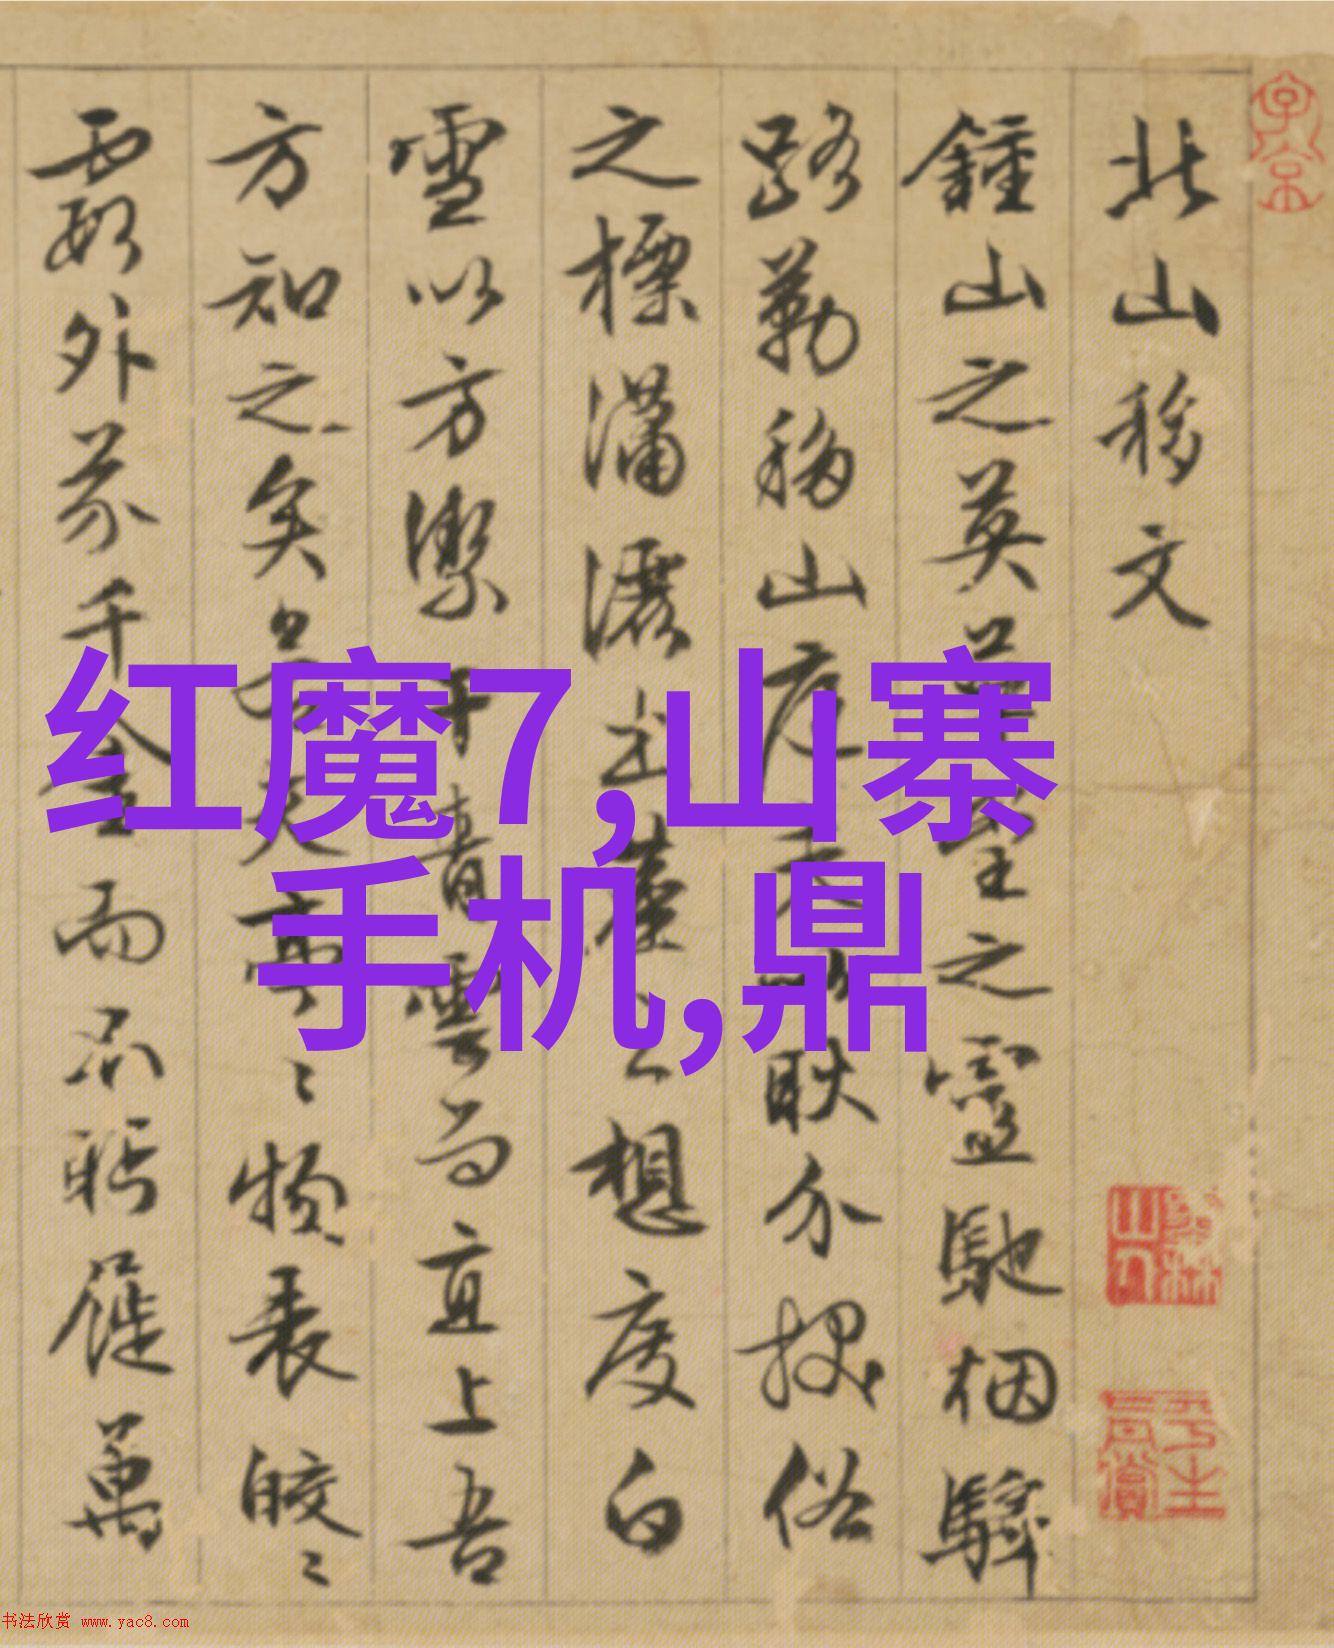 红魔7,山寨
手机,鼎
北山移文
鍾山之英草堂之靈馳烟驛
路勒移山庭夫以耿介拔俗
之標瀟灑出塵之想度白
雪以方潔干青雲而直上吾
方知之矣若其亭〻物表皎〻
霞外芥千金而不眄屣萬
子京
书法欣赏 www.yac8.com